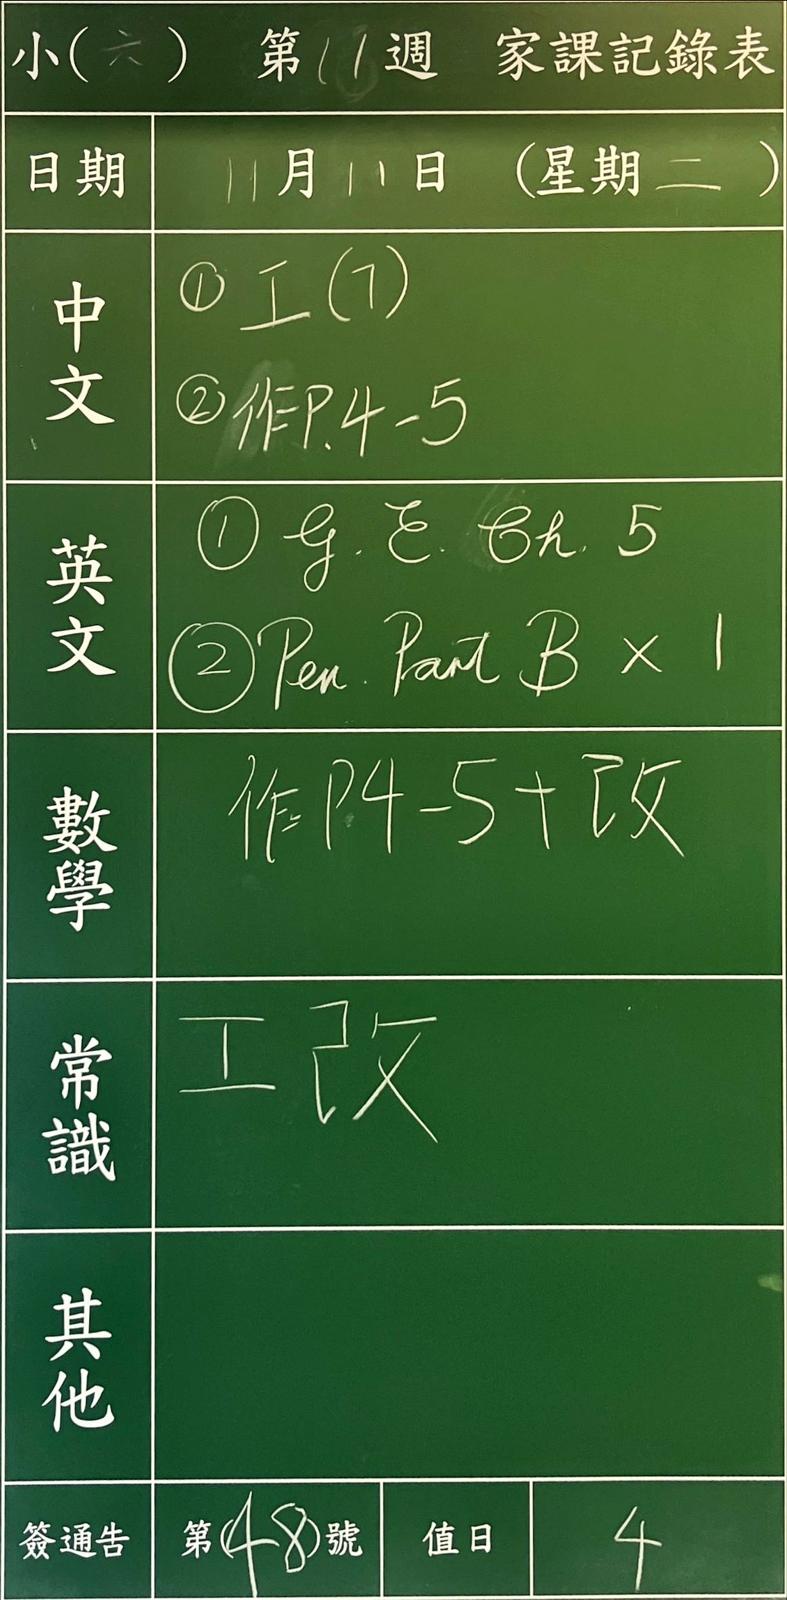 小(六) 第11週 家課記錄表
日期 11月11日 (星期二)
中文
① 工(7)
② 作P.4-5
英文
① G.E. Ch. 5
② Pen. Part B × 1
數學
作P4-5+改
常識
工改
其他
簽通告 第(48)號 值日 4